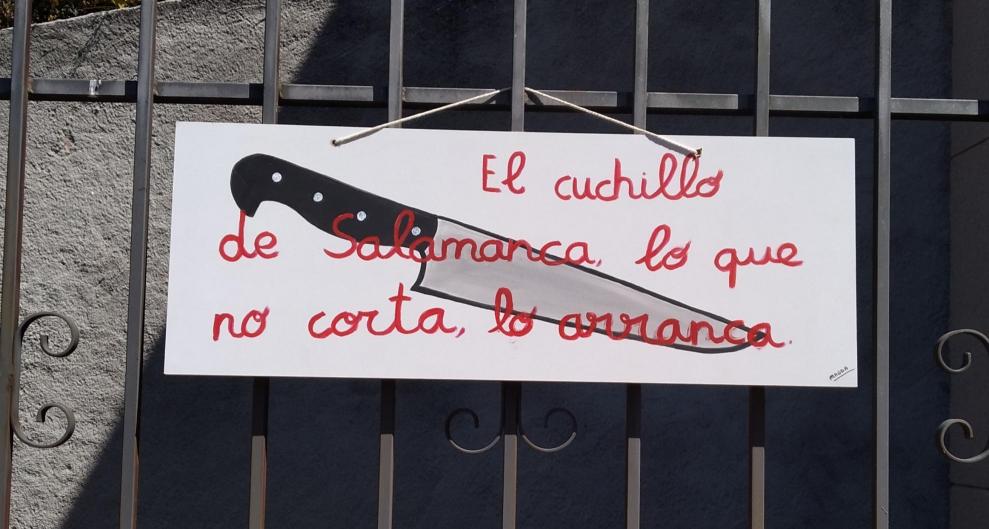 El cuchillo
de Salamanca, lo que
no corta, lo arranca.
MAGDA